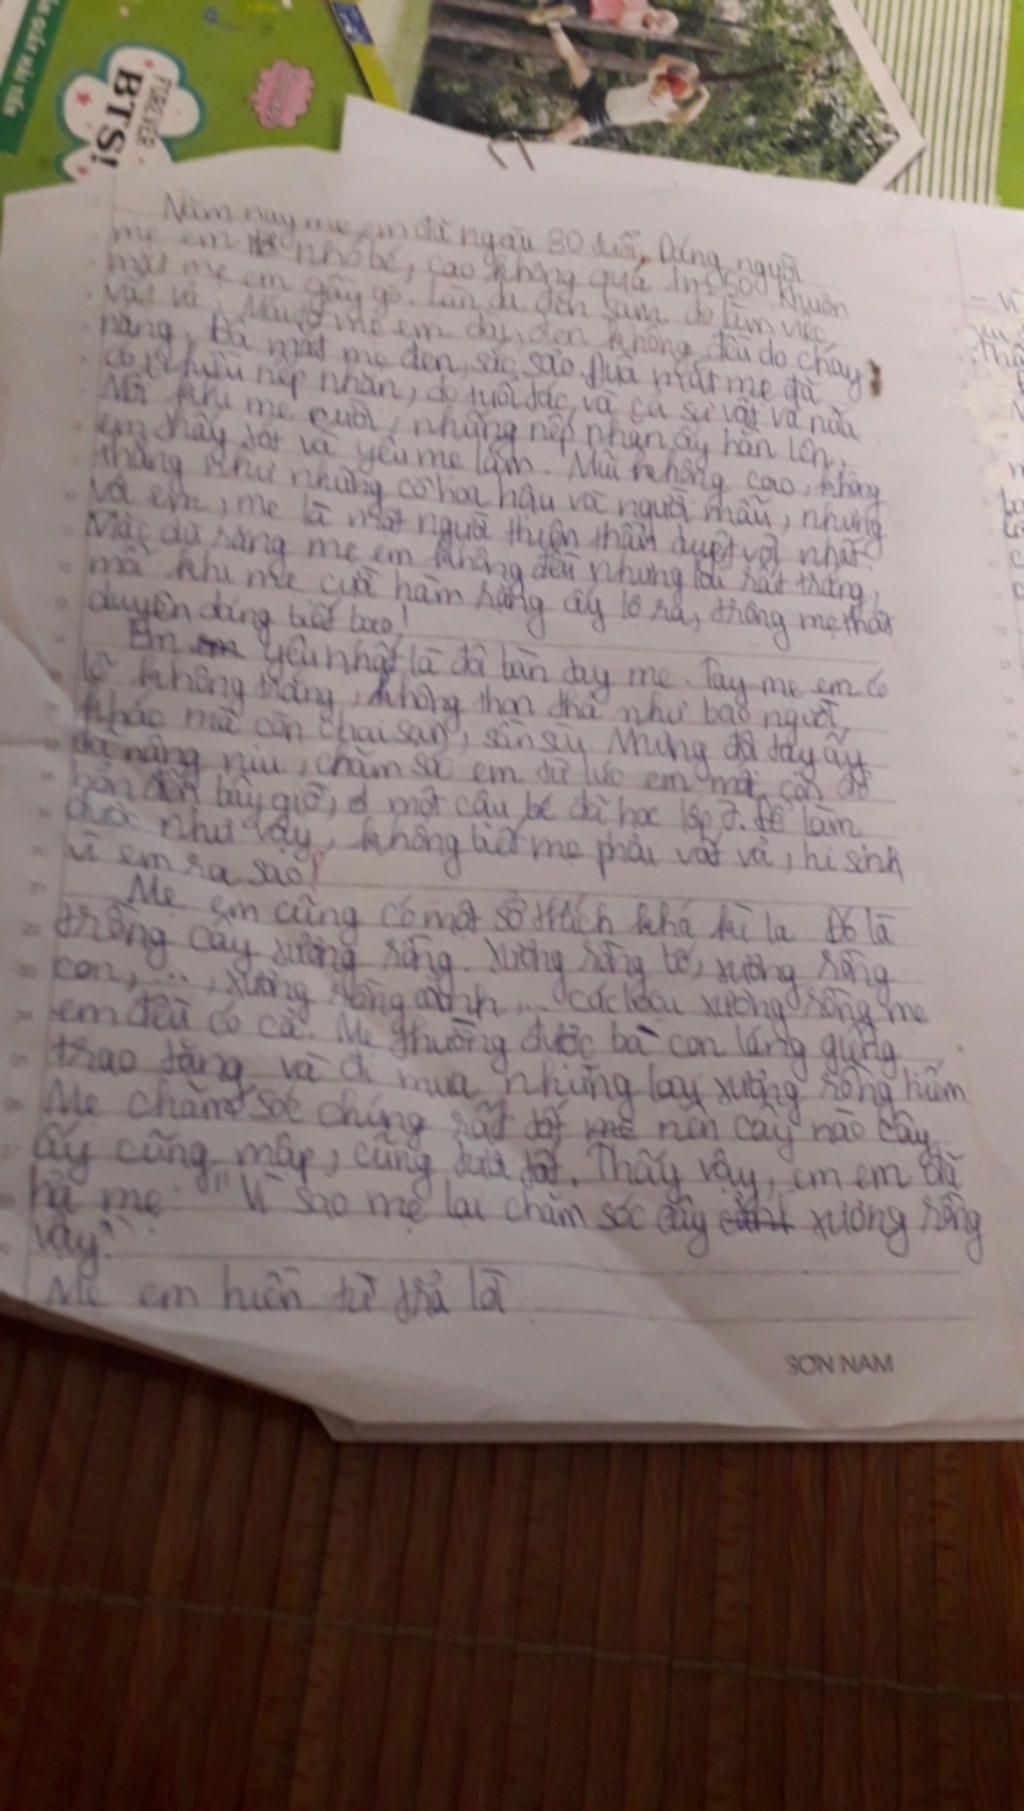 FOREVER
BTS!
Năm nay mẹ em đã ngoài 30 tuổi. Dáng người
mẹ em nhỏ bé, cao không quá 1m50. Khuôn
mặt mẹ em gầy gò. Làn da đen sạm do làm việc
vất vả. mẹ em dày, đen không đều do cháy
nắng. Đôi mắt mẹ đen, sắc sảo. Đuôi mắt mẹ đã
có nhiều nếp nhăn, do tuổi tác và cả sự vất vả nữa
Mỗi khi mẹ cười, những nếp nhăn ấy hằn lên,
em thấy xót và yêu mẹ lắm. Mũi không cao, không
thẳng như những cô hoa hậu và người mẫu, nhưng
với em, mẹ là một người thiên thần tuyệt vời nhất.
Mặc dù răng mẹ em không đều nhưng lại rất trắng,
mỗi khi mẹ cười hàm răng ấy lộ ra, trông mẹ thật
duyên dáng biết bao!
Em yêu nhất là đôi bàn tay mẹ. Tay mẹ em có
lẽ không trắng, không thon thả như bao người
khác mà còn chai sạn, sần sùi. Nhưng đôi tay ấy
đã nâng niu, chăm sóc em từ lúc em mới còn đỏ
hỏn đến bây giờ, một cậu bé đã học lớp 7. Để làm
được như vậy, không biết mẹ phải vất vả, hi sinh
vì em ra sao!
Mẹ em cũng có một sở thích khá kì lạ. Đó là
trồng cây xương rồng. Xương rồng bố, xương rồng
con, ..., xương rồng cảnh, ... các loại xương rồng mẹ
em đều có cả. Mẹ thường được bà con láng giềng
trao tặng và đi mua những loại xương rồng hiếm
Mẹ chăm sóc chúng rất tốt nên cây nào cây
ấy cũng mập, cũng tươi tốt. Thấy vậy, em em đã
hỏi mẹ: "Vì sao mẹ lại chăm sóc cây xương rồng
vậy?"
Mẹ em hiền từ trả lời
SƠN NAM